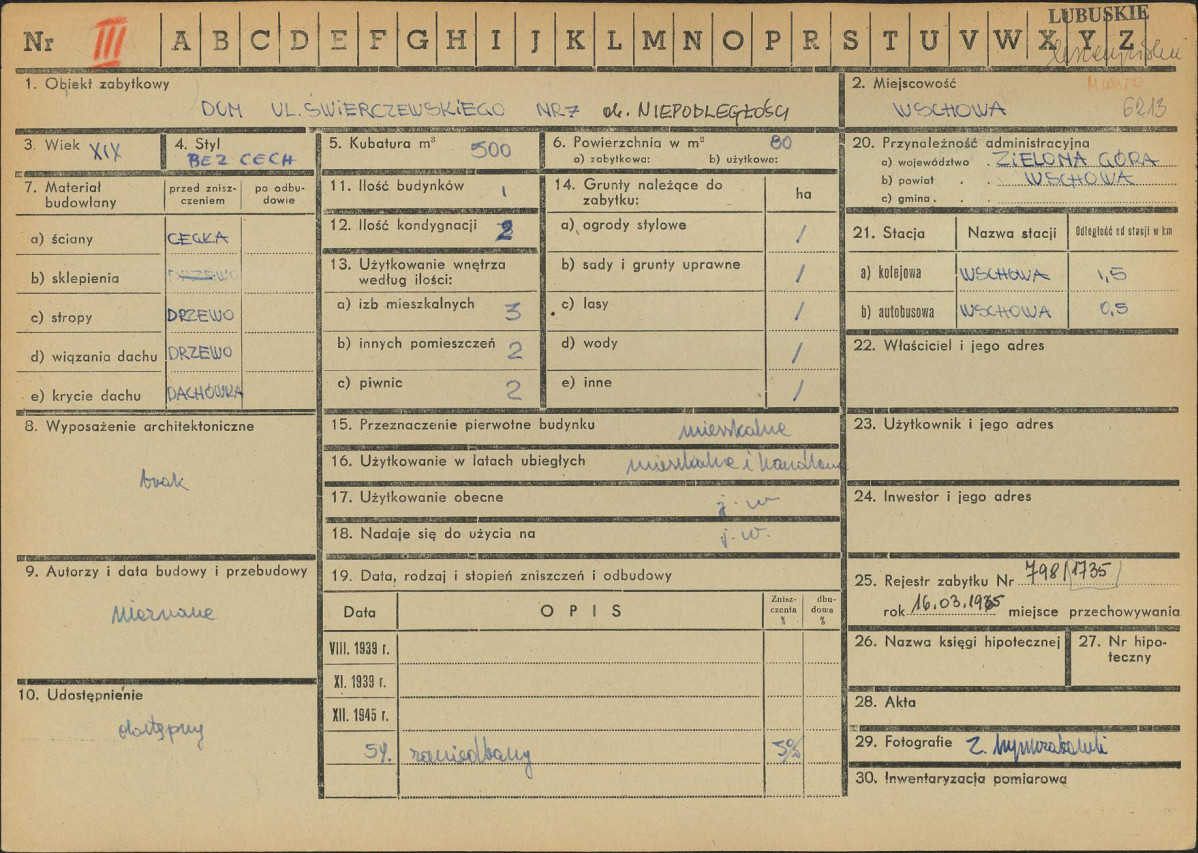 LUBUSKIE
Nr III A B C D E F G H I J K L M N O P R S T U V W X Y Z
Miasto
1. Obiekt zabytkowy
DOM UL. ŚWIERCZEWSKIEGO NR 7 ob. NIEPODLEGŁOŚCI
2. Miejscowość
WSCHOWA 6213
3. Wiek XIX
4. Styl
BEZ CECH
5. Kubatura m³ 500
6. Powierzchnia w m² 80
a) zabytkowa: b) użytkowa:
7. Materiał budowlany
przed zniszczeniem
po odbudowie
a) ściany CEGŁA
b) sklepienia DRZEWO
c) stropy DRZEWO
d) wiązania dachu DRZEWO
e) krycie dachu DACHÓWKA
8. Wyposażenie architektoniczne
brak
9. Autorzy i data budowy i przebudowy
nieznane
10. Udostępnienie
dostępny
11. Ilość budynków 1
12. Ilość kondygnacji 2
13. Użytkowanie wnętrza
według ilości:
a) izb mieszkalnych 3
b) innych pomieszczeń 2
c) piwnic 2
14. Grunty należące do
zabytku:
ha
a) ogrody stylowe /
b) sady i grunty uprawne /
c) lasy /
d) wody /
e) inne /
15. Przeznaczenie pierwotne budynku mieszkalne
16. Użytkowanie w latach ubiegłych mieszkalne i handlowe
17. Użytkowanie obecne j. w
18. Nadaje się do użycia na j. w.
19. Data, rodzaj i stopień zniszczeń i odbudowy
Data OPIS Zniszczenia % dbudowa %
VIII. 1939 r.
XI. 1939 r.
XII. 1945 r.
54. zaniedbany 5%
20. Przynależność administracyjna
a) województwo ZIELONA GÓRA
b) powiat WSCHOWA
c) gmina
21. Stacja Nazwa stacji Odległość od stacji w km
a) kolejowa WSCHOWA 1,5
b) autobusowa WSCHOWA 0,5
22. Właściciel i jego adres
23. Użytkownik i jego adres
24. Inwestor i jego adres
25. Rejestr zabytku Nr 798/1735
rok 16.03.1965 miejsce przechowywania
26. Nazwa księgi hipotecznej
27. Nr hipoteczny
28. Akta
29. Fotografie Z.
30. Inwentaryzacja pomiarowa